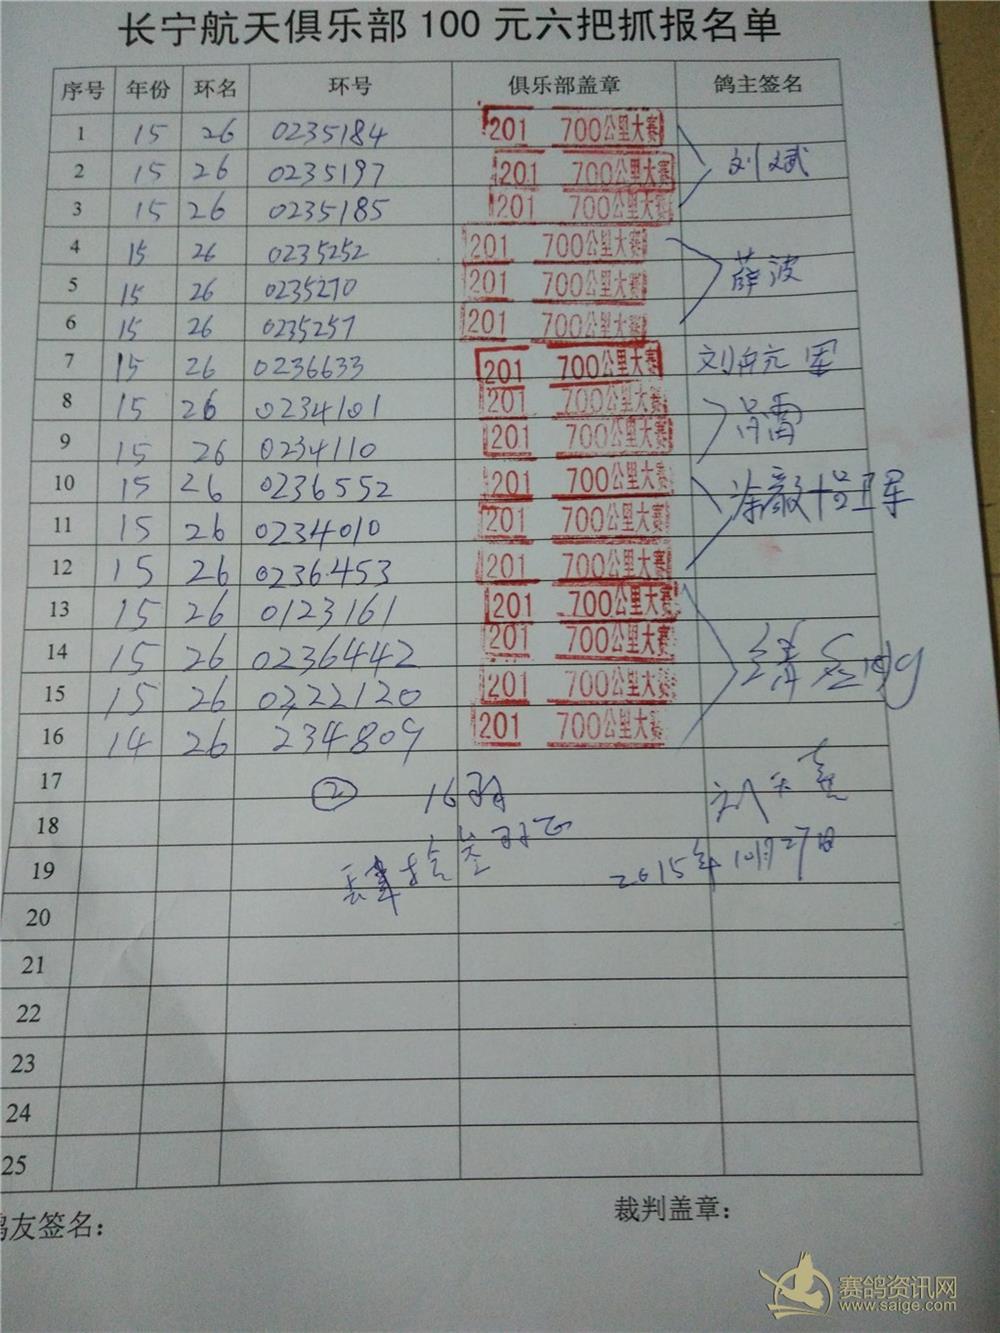 长宁航天俱乐部100元六把抓报名单
序号 年份 环名 环号 俱乐部盖章 鸽主签名
1 15 26 0235184 201 700公里大赛
2 15 26 0235197 201 700公里大赛 刘斌
3 15 26 0235185 201 700公里大赛
4 15 26 0235252 201 700公里大赛
5 15 26 0235270 201 700公里大赛 薛波
6 15 26 0235257 201 700公里大赛
7 15 26 0236633 201 700公里大赛 刘 军
8 15 26 0234101 201 700公里大赛 吕雷
9 15 26 0234110 201 700公里大赛
10 15 26 0236552 201 700公里大赛 涂毅+ 卫军
11 15 26 0234010 201 700公里大赛
12 15 26 0236453 201 700公里大赛
13 15 26 0123161 201 700公里大赛
14 15 26 0236442 201 700公里大赛
15 15 26 0222120 201 700公里大赛
16 14 26 234809 201 700公里大赛
17 ② 16羽
18
19 2015年10月27日
20
21
22
23
24
25
鸽友签名：
裁判盖章：
赛鸽资讯网
www.saige.com